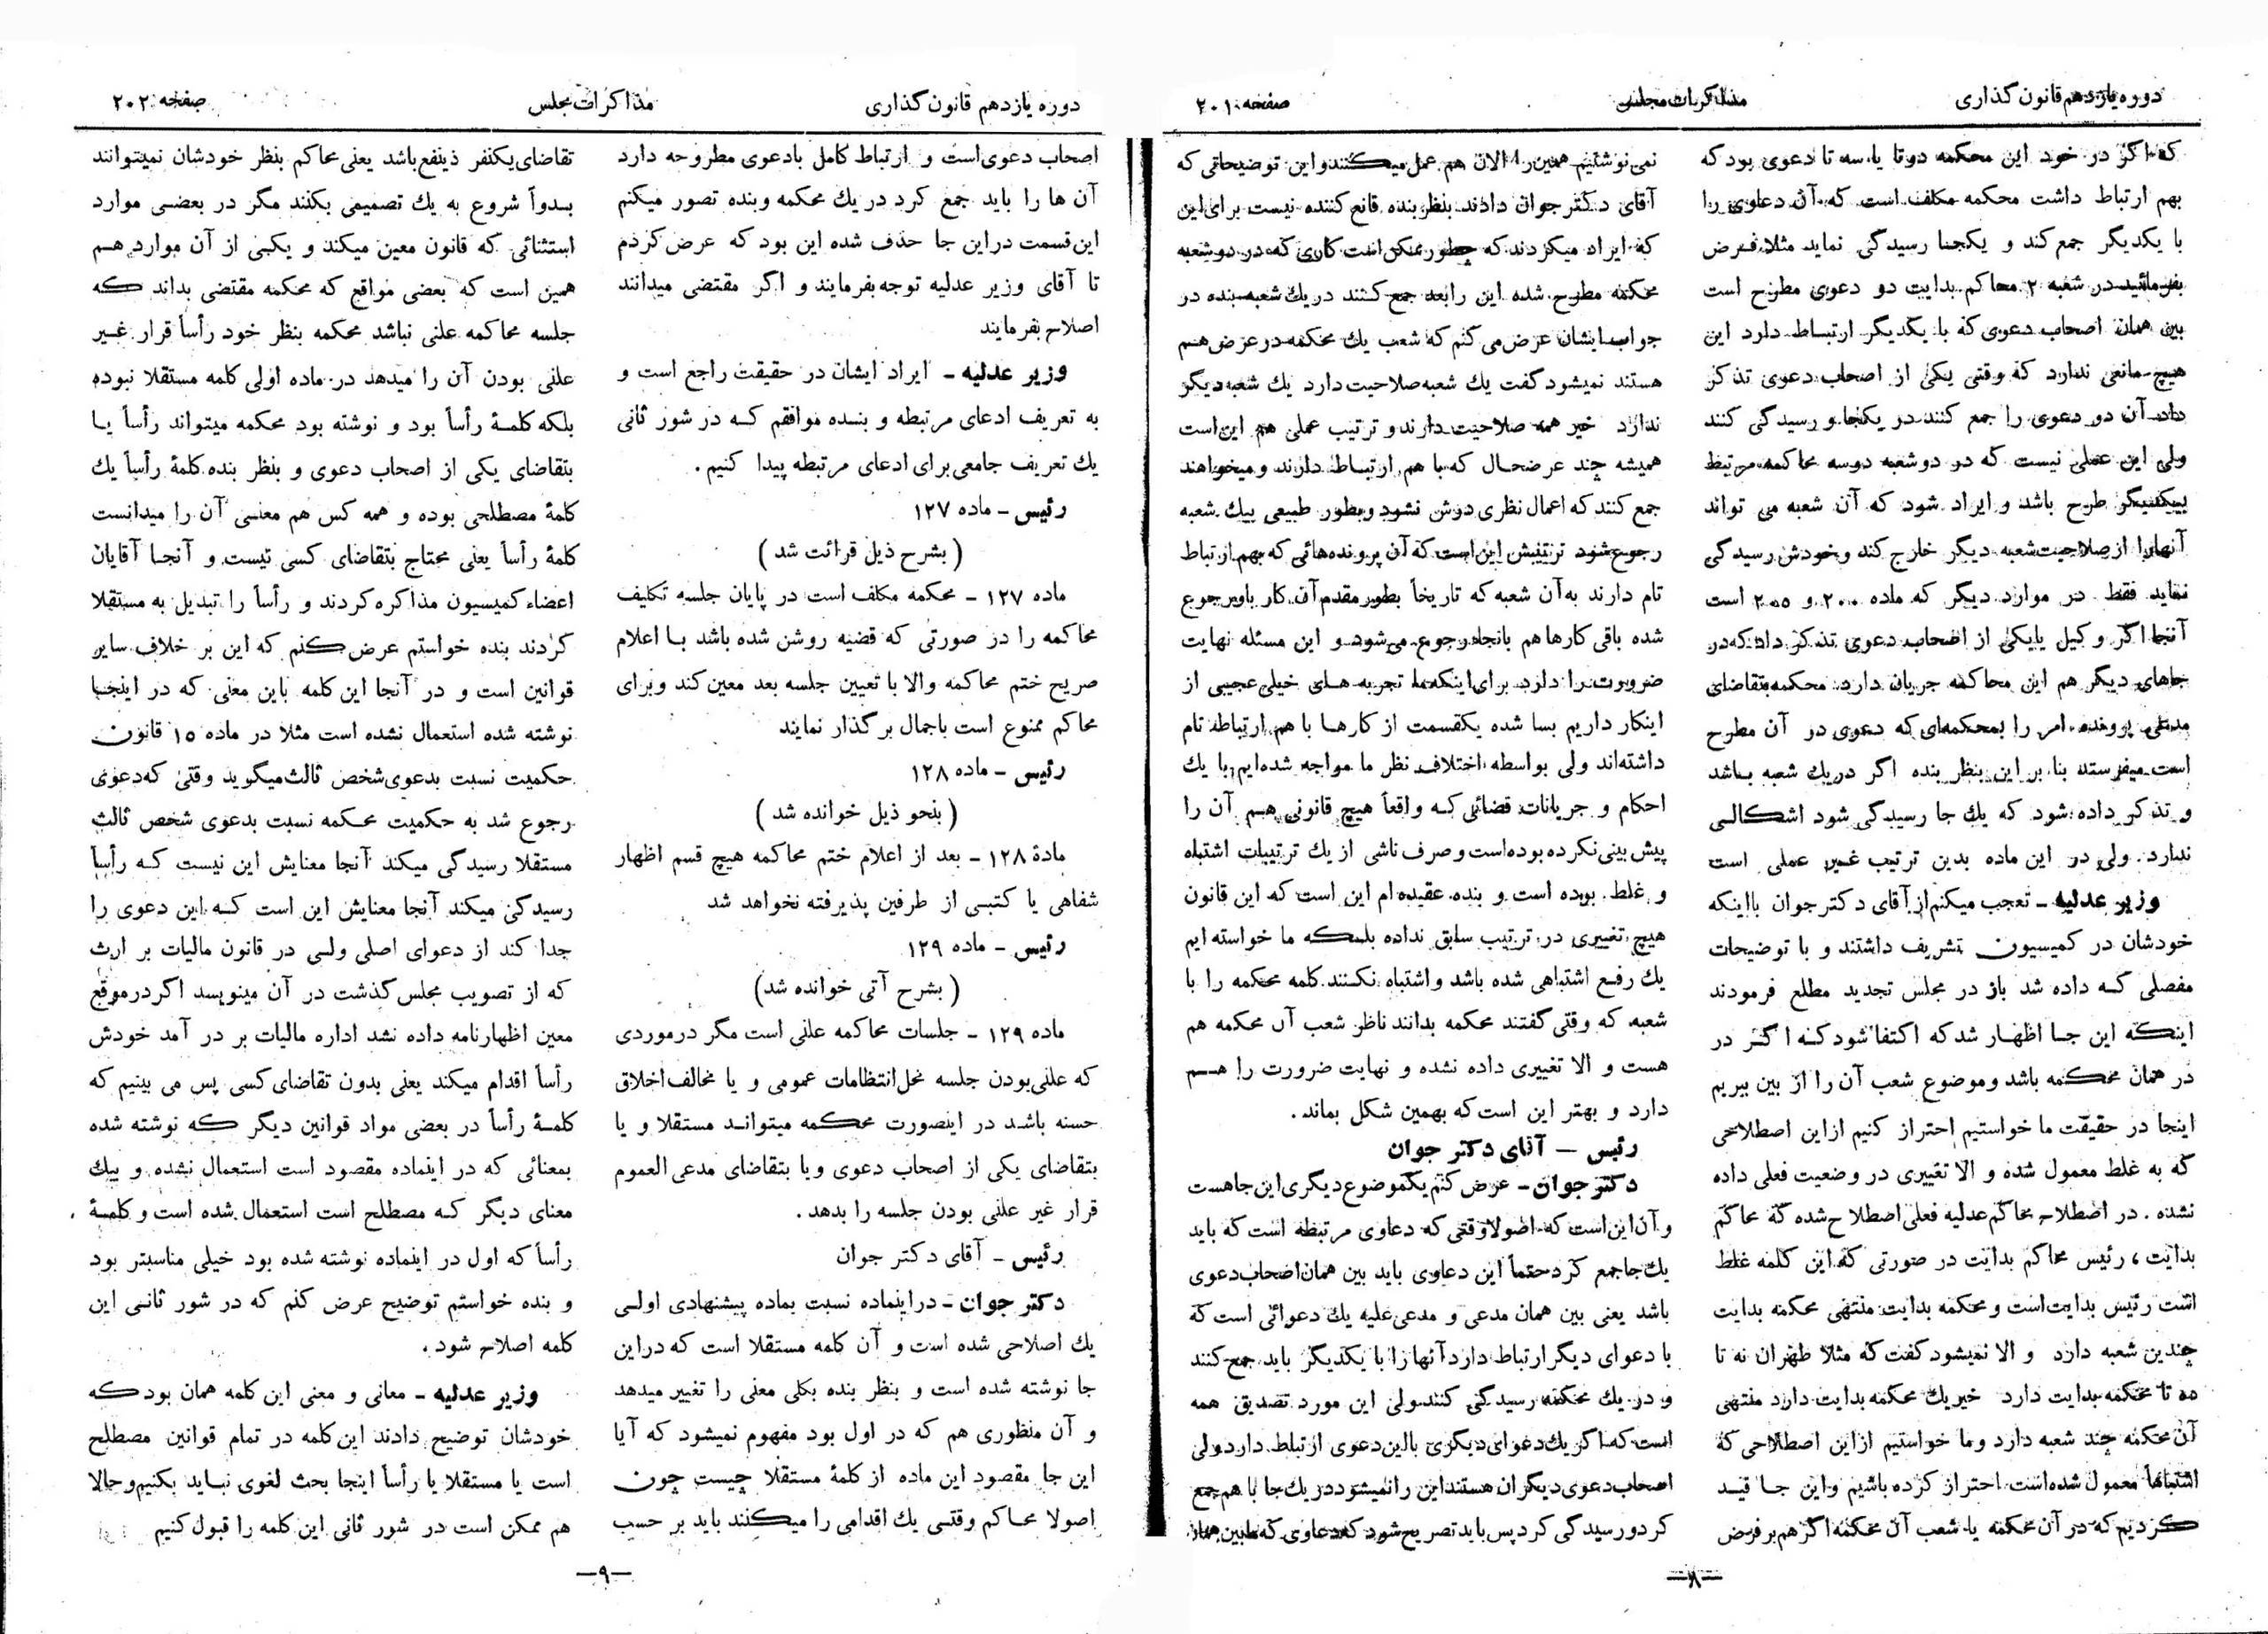 دوره یازدهم قانون گذاری
مذاکرات مجلس
صفحه ۲۰۱
که اگر در خود این محکمه دوتا یا سه تا دعوی بود که
بهم ارتباط داشت محکمه مکلف است که آن دعاوی را
با یکدیگر جمع کند و یکجا رسیدگی نماید مثلا فرض
بفرمائید در شعبه ۲ محاکم بدایت دو دعوی مطرح است
بین همان اصحاب دعوی که با یکدیگر ارتباط دارد این
هیچ مانعی ندارد که وقتی یکی از اصحاب دعوی تذکر
داد آن دو دعوی را جمع کنند در یکجا و رسیدگی کنند
ولی این عملی نیست که در دو شعبه دوسه محاکمه مرتبط
بیکدیگر طرح باشد و ایراد شود که آن شعبه می تواند
آنها را از صلاحیت شعبه دیگر خارج کند و خودش رسیدگی
نماید فقط در موارد دیگر که ماده ۲۰۰ و ۲۰۵ است
آنجا اگر وکیل یا یکی از اصحاب دعوی تذکر داد که در
جاهای دیگر هم این محاکمه جریان دارد محکمه بتقاضای
مدعی پرونده امر را بمحکمه‌ای که دعوی در آن مطرح
است میفرستد بنا بر این بنظر بنده اگر در یك شعبه باشد
و تذکر داده شود که یك جا رسیدگی شود اشکالی
ندارد. ولی در این ماده بدین ترتیب غیر عملی است
وزیر عدلیه - تعجب میکنم از آقای دکتر جوان با اینکه
خودشان در کمیسیون تشریف داشتند و با توضیحات
مفصلی که داده شد باز در مجلس تجدید مطلع فرمودند
اینکه این جا اظهار شد که اکتفا شود که اگر در
در همان محکمه باشد و موضوع شعب آن را از بین ببریم
اینجا در حقیقت ما خواستیم احتراز کنیم از این اصطلاحی
که به غلط معمول شده و الا تغییری در وضعیت فعلی داده
نشده . در اصطلاح محاکم عدلیه فعلی اصطلاح شده که محاکم
بدایت ، رئیس محاکم بدایت در صورتی که این کلمه غلط
است رئیس بدایت است و محکمه بدایت منتهی محکمه بدایت
چندین شعبه دارد و الا نمیشود گفت که مثلا طهران نه تا
ده تا محکمه بدایت دارد خیر یك محکمه بدایت دارد منتهی
آن محکمه چند شعبه دارد و ما خواستیم از این اصطلاحی که
اشتباهاً معمول شده است احتراز کرده باشیم و این جا قید
کردیم که در آن محکمه یا شعب آن محکمه اگر هم بر فرض
نمی نوشتیم همین را الان هم عمل میکنند و این توضیحاتی که
آقای دکتر جوان دادند بنظر بنده قانع کننده نیست برای این
که ایراد میکردند که چطور ممکن است کاری که در دو شعبه
محکمه مطرح شده این را بعد جمع کنند در یك شعبه بنده در
جواب ایشان عرض می کنم که شعب یك محکمه در عرض هم
هستند نمیشود گفت یك شعبه صلاحیت دارد یك شعبه دیگر
ندارد خیر همه صلاحیت دارند و ترتیب عملی هم این است
همیشه چند عرضحال که با هم ارتباط دارند و میخواهند
جمع کنند که اعمال نظری درش نشود و بطور طبیعی بیك شعبه
رجوع شود ترتیبش این است که آن پرونده هائی که بهم ارتباط
تام دارند به آن شعبه که تاریخاً بطور مقدم آن کار باو رجوع
شده باقی کارها هم بانجا رجوع می شود و این مسئله نهایت
ضرورت را دارد برای اینکه ما تجربه های خیلی عجیبی از
اینکار داریم بسا شده یکقسمت از کارها با هم ارتباط تام
داشته‌اند ولی بواسطه اختلاف نظر ما مواجه شده‌ایم با یك
احکام و جریانات قضائی که واقعاً هیچ قانونی هم آن را
پیش بینی نکرده بوده است و صرف ناشی از یك ترتیبات اشتباه
و غلط بوده است و بنده عقیده ام این است که این قانون
هیچ تغییری در ترتیب سابق نداده بلکه ما خواسته ایم
یك رفع اشتباهی شده باشد و اشتباه نکنند کلمه محکمه را با
شعبه که وقتی گفتند محکمه بدانند ناظر شعب آن محکمه هم
هست و الا تغییری داده نشده و نهایت ضرورت را هم
دارد و بهتر این است که بهمین شکل بماند .
رئیس - آقای دکتر جوان
دکتر جوان - عرض کنم یکموضوع دیگری این جا هست
و آن این است که اصولا وقتی که دعاوی مرتبطه است که باید
یك جا جمع کرد حتماً این دعاوی باید بین همان اصحاب دعوی
باشد یعنی بین همان مدعی و مدعی علیه یك دعوائی است که
با دعوای دیگر ارتباط دارد آنها را با یکدیگر باید جمع کنند
و در یك محکمه رسیدگی کنند ولی این مورد تصدیق همه
است که اگر یك دعوای دیگری با این دعوی ارتباط دارد ولی
اصحاب دعوی دیگران هستند این را نمیشود در یك جا با هم جمع
کرد و رسیدگی کرد پس باید تصریح شود که دعاوی که مابین همان
—۸—
دوره یازدهم قانون گذاری
مذاکرات مجلس
صفحه ۲۰۲
اصحاب دعوی است و ارتباط کامل با دعوی مطروحه دارد
آن ها را باید جمع کرد در یك محکمه و بنده تصور میکنم
این قسمت در این جا حذف شده این بود که عرض کردم
تا آقای وزیر عدلیه توجه بفرمایند و اگر مقتضی میدانند
اصلاح بفرمایند
وزیر عدلیه - ایراد ایشان در حقیقت راجع است و
به تعریف ادعای مرتبطه و بنده موافقم که در شور ثانی
یك تعریف جامعی برای ادعای مرتبطه پیدا کنیم .
رئیس - ماده ۱۲۷
( بشرح ذیل قرائت شد )
ماده ۱۲۷ - محکمه مکلف است در پایان جلسه تکلیف
محاکمه را در صورتی که قضیه روشن شده باشد با اعلام
صریح ختم محاکمه والا با تعیین جلسه بعد معین کند و برای
محاکم ممنوع است باجمال برگذار نمایند
رئیس - ماده ۱۲۸
( بنحو ذیل خوانده شد )
مادۀ ۱۲۸ - بعد از اعلام ختم محاکمه هیچ قسم اظهار
شفاهی یا کتبی از طرفین پذیرفته نخواهد شد
رئیس - ماده ۱۲۹
( بشرح آتی خوانده شد)
ماده ۱۲۹ - جلسات محاکمه علنی است مگر درموردی
که علنی بودن جلسه مخل انتظامات عمومی و یا مخالف اخلاق
حسنه باشد در اینصورت محکمه میتواند مستقلا و یا
بتقاضای یکی از اصحاب دعوی ویا بتقاضای مدعی العموم
قرار غیر علنی بودن جلسه را بدهد .
رئیس - آقای دکتر جوان
دکتر جوان - در اینماده نسبت بماده پیشنهادی اولی
یك اصلاحی شده است و آن کلمه مستقلا است که دراین
جا نوشته شده است و بنظر بنده بکلی معنی را تغییر میدهد
و آن منظوری هم که در اول بود مفهوم نمیشود که آیا
این جا مقصود این ماده از کلمۀ مستقلا چیست چون
اصولا محاکم وقتی یك اقدامی را میکنند باید بر حسب
تقاضای یکنفر ذینفع باشد یعنی محاکم بنظر خودشان نمیتوانند
بدواً شروع به یك تصمیمی بکنند مگر در بعضی موارد
استثنائی که قانون معین میکند و یکی از آن موارد هم
همین است که بعضی مواقع که محکمه مقتضی بداند که
جلسه محاکمه علنی نباشد محکمه بنظر خود رأساً قرار غیر
علنی بودن آن را میدهد در ماده اولی کلمه مستقلا نبوده
بلکه کلمۀ رأساً بود و نوشته بود محکمه میتواند رأساً یا
بتقاضای یکی از اصحاب دعوی و بنظر بنده کلمۀ رأساً یك
کلمۀ مصطلحی بوده و همه کس هم معنی آن را میدانست
کلمۀ رأساً یعنی محتاج بتقاضای کسی نیست و آنجا آقایان
اعضاء کمیسیون مذاکره کردند و رأساً را تبدیل به مستقلا
کردند بنده خواستم عرض کنم که این بر خلاف سایر
قوانین است و در آنجا این کلمه باین معنی که در اینجا
نوشته شده استعمال نشده است مثلا در ماده ۱۵ قانون
حکمیت نسبت بدعوی شخص ثالث میگوید وقتی که دعوی
رجوع شد به حکمیت محکمه نسبت بدعوی شخص ثالث
مستقلا رسیدگی میکند آنجا معنایش این نیست که رأساً
رسیدگی میکند آنجا معنایش این است که این دعوی را
جدا کند از دعوای اصلی ولی در قانون مالیات بر ارث
که از تصویب مجلس گذشت در آن مینویسد اگر درموقع
معین اظهارنامه داده نشد اداره مالیات بر در آمد خودش
رأساً اقدام میکند یعنی بدون تقاضای کسی پس می بینیم که
کلمۀ رأساً در بعضی مواد قوانین دیگر که نوشته شده
بمعنائی که در اینماده مقصود است استعمال نشده و بیك
معنای دیگر که مصطلح است استعمال شده است و کلمۀ
رأساً که اول در اینماده نوشته شده بود خیلی مناسبتر بود
و بنده خواستم توضیح عرض کنم که در شور ثانی این
کلمه اصلاح شود .
وزیر عدلیه - معانی و معنی این کلمه همان بود که
خودشان توضیح دادند این کلمه در تمام قوانین مصطلح
است یا مستقلا یا رأساً اینجا بحث لغوی نباید بکنیم و حالا
هم ممکن است در شور ثانی این کلمه را قبول کنیم
—۹—